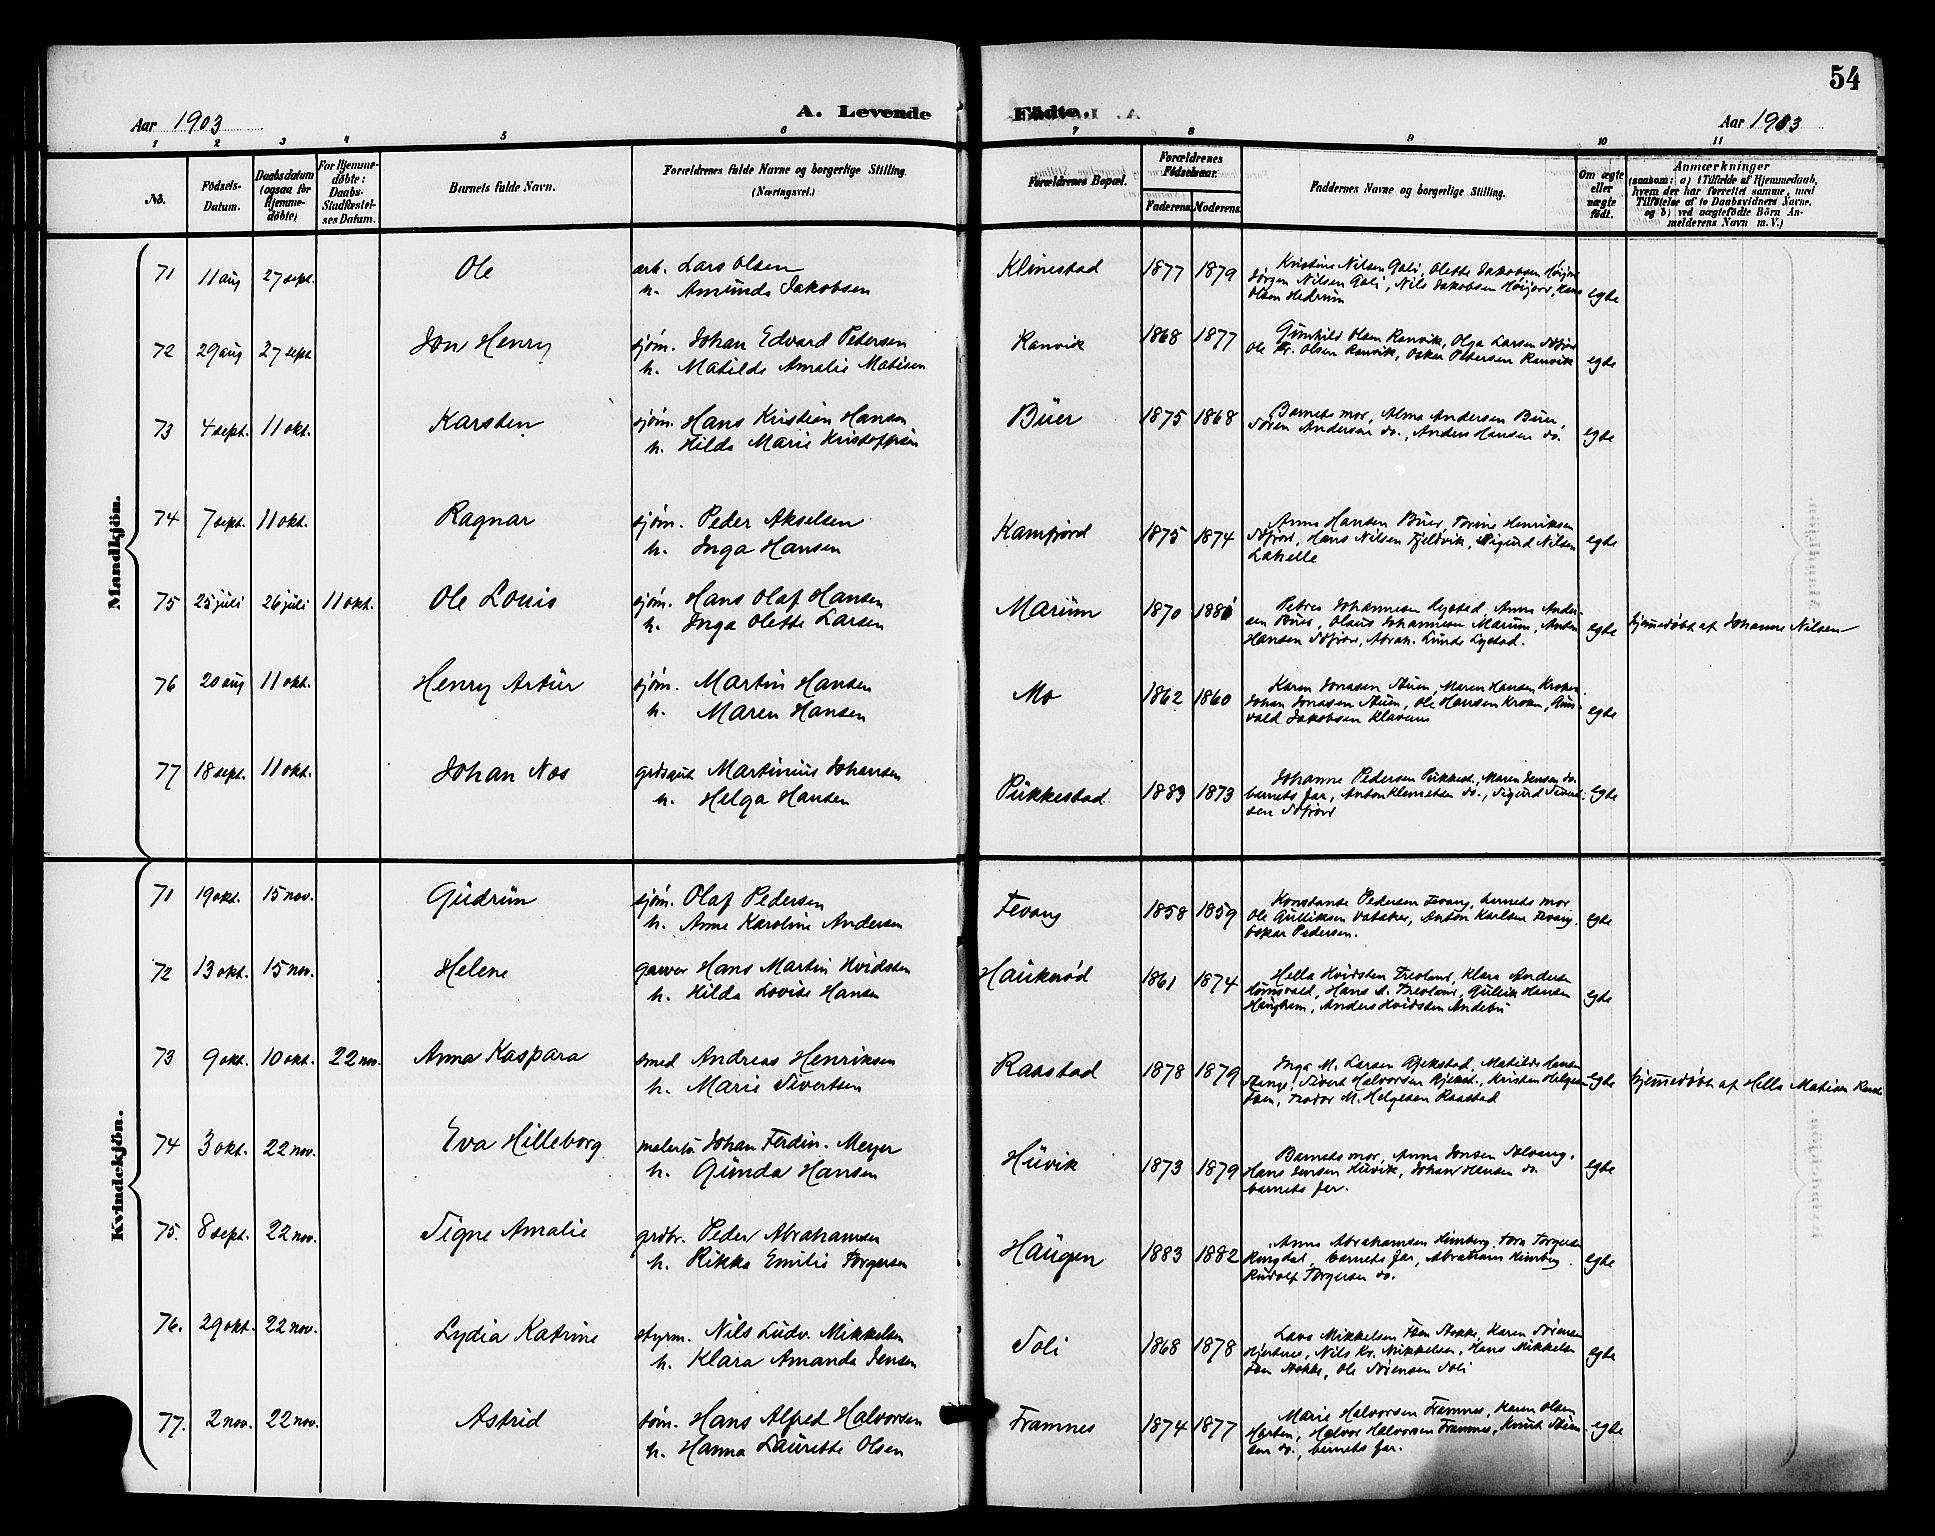 54
Aar 1903
A. Levende Fødte.
Aar 1903
1 2 3 4 5 6 7 8 9 10 11
No.
Fødsels-Datum.
Daabsdatum (ogsaa for Hjemmedøbte)
For Hjemmedøbte: Daabs-Stadfæstelses Datum.
Barnets fulde Navn.
Forældrenes fulde Navne og borgerlige Stilling. (Næringsvei.)
Forældrenes Bopæl.
Forældrenes Fødselsaar.
Faderens. Moderens.
Faddernes Navne og borgerlige Stilling.
Om ægte eller uægte født.
Anmærkninger (saasom: a) i Tilfælde af Hjemmedaab, hvem der har forrettet samme, med Tilføielse af to Daabsvidners Navne, og b) ved uægtefødte Børn Anmelderens Navn m. V.)
Mandkjön.
71 11 aug 27 sept. Ole arb. Lars Olsen
h. Amunda Jakobsen
Klinestad 1877 1879 Kristine Nilsen Gali, Olette Jakobsen
Jørgen Nilsen Gali, Nils Jakobsen
Olsen Hedrum egte
72 29 aug 27 sept Jon Henry sjøm. Johan Edvard Petersen
h. Matilde Amalie Matisen
Ranvik 1868 1877 Gunhild Olsen Ranvik, Olga Larsen
Ole Kr. Olsen Ranvik, Oskar Petersen Ranvik egte
73 4 sept. 11 okt. Karsten sjøm. Hans Kristian Hansen
h. Hilda Marie Kristoffersen
Buer 1875 1868 Barnets mor, Alma Andersen Buer,
Søren Andersen do., Anders Hansen do. egte
74 7 sept. 11 okt. Ragnar sjøm. Peder Akselsen
h. Inga Hansen
Kamfjord 1875 1874 Anna Hansen Buer, Torine Henriksen
Hans Nilsen Fjeldvik, Sigurd Nilsen
Lahelle egte
75 25 juli 26 juli 11 okt. Ole Louis sjøm. Hans Olaf Hansen
h. Inga Olette Larsen
Marum 1870 1880 Petrea Johannesen Lystad, Anna Ander-
sen Buer, Olaus Johannesen Marum, Anton
Hansen Abrah. Lunde Lystad. egte hjemmedøbt af Johanne Nilsen
76 20 aug 11 okt. Henry Artur sjøm. Martin Hansen
h. Maren Hansen
Mo 1862 1860 Karen Jonasen Stuen, Maren Hansen Kroken
Johan Jonasen Stuen, Ole Hansen Kroken,
vald Jakobsen Klavenes egte
77 18 sept. 11 okt. Johan Nos grdsgut Martinius Johansen
h. Helga Hansen
Pukkestad 1883 1873 Johanne Pedersen Pukkest., Maren Jensen do.
barnets far, Anton Klemetsen do., Sigurd Sivert-
sen egte
Kvindekjön.
71 19 okt. 15 nov. Gudrun sjøm. Olaf Pedersen
h. Anne Karoline Andersen
Fevang 1858 1859 Konstanse Pedersen Fevang, barnets mor
Ole Gulliksen Vataker, Anton Karlsen Fevang
Oskar Pedersen. egte
72 13 okt. 15 nov. Helene garver Hans Martin Hvidsten
h. Hilda Lovise Hansen
Haukerød 1861 1874 Hella Hvidsten Klara Andersen
Hans A. Gullik Hansen
Haughem, Anders Hvidsten Andebu egte
73 9 okt. 10 okt. 22 nov. Anna Kaspara smed Andreas Henriksen
h. Marie Sivertsen
Raastad 1878 1879 Inga M. Larsen Gjekstad, Matilde Hansen
Stange, Sivert Halvorsen Gjekst., Kristen Helgesen
Fæn, Teodor M. Helgesen Raastad egte hjemmedøbt af Hella Matisen
74 3 okt. 22 nov. Eva Hilleborg malersv. Johan Ferdin. Meyer
h. Gunda Hansen
Huvik 1873 1879 Barnets mor, Anna Jensen Solvang.
Hans Jensen Huvik, Johan Hansen do.
barnets far. egte
75. 8 sept. 22 nov. Signe Amalie grdbr. Peder Abrahamsen
h. Rikka Emilie Torgersen
Haugen 1883 1882 Anna Abrahamsen Kimberg, Torn Torgersen
Ringdal, barnets far, Abraham Kimberg
Rudolf Torgersen do. egte
76. 29 okt. 22 nov. Lydia Katrine styrm. Nils Ludv. Mikkelsen
h. Klara Amanda Jensen
Soli 1868 1878 Lava Mikkelsen Fæn Stokke, Karen Sørensen
Hjertnes, Nils Kr. Mikkelsen, Hans Mikkelsen
Fæn Stokke, Ole Sørensen Soli egte
77. 2 nov. 22 nov. Astrid tøm. Hans Alfred Halvorsen
h. Hanna Laurette Olsen
Framnes 1874 1877 Marie Halvorsen Framnes, Karen Olsen
Horten, Halvor Halvorsen Framnes, Knut
sen do., barnets far. egte